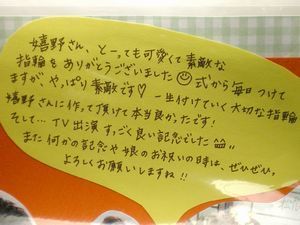 嬉野さん、とーっても可愛くて素敵な
指輪をありがとうございました☺ 式から毎日つけて
ますが、やっぱり素敵です♡ 一生付けていく大切な指輪
嬉野さんに作って頂けて本当良かったです!
そして… TV出演すっごく良い記念でした
また何かの記念や娘のお祝いの時は、ぜひぜひ、
よろしくお願いしますね!!